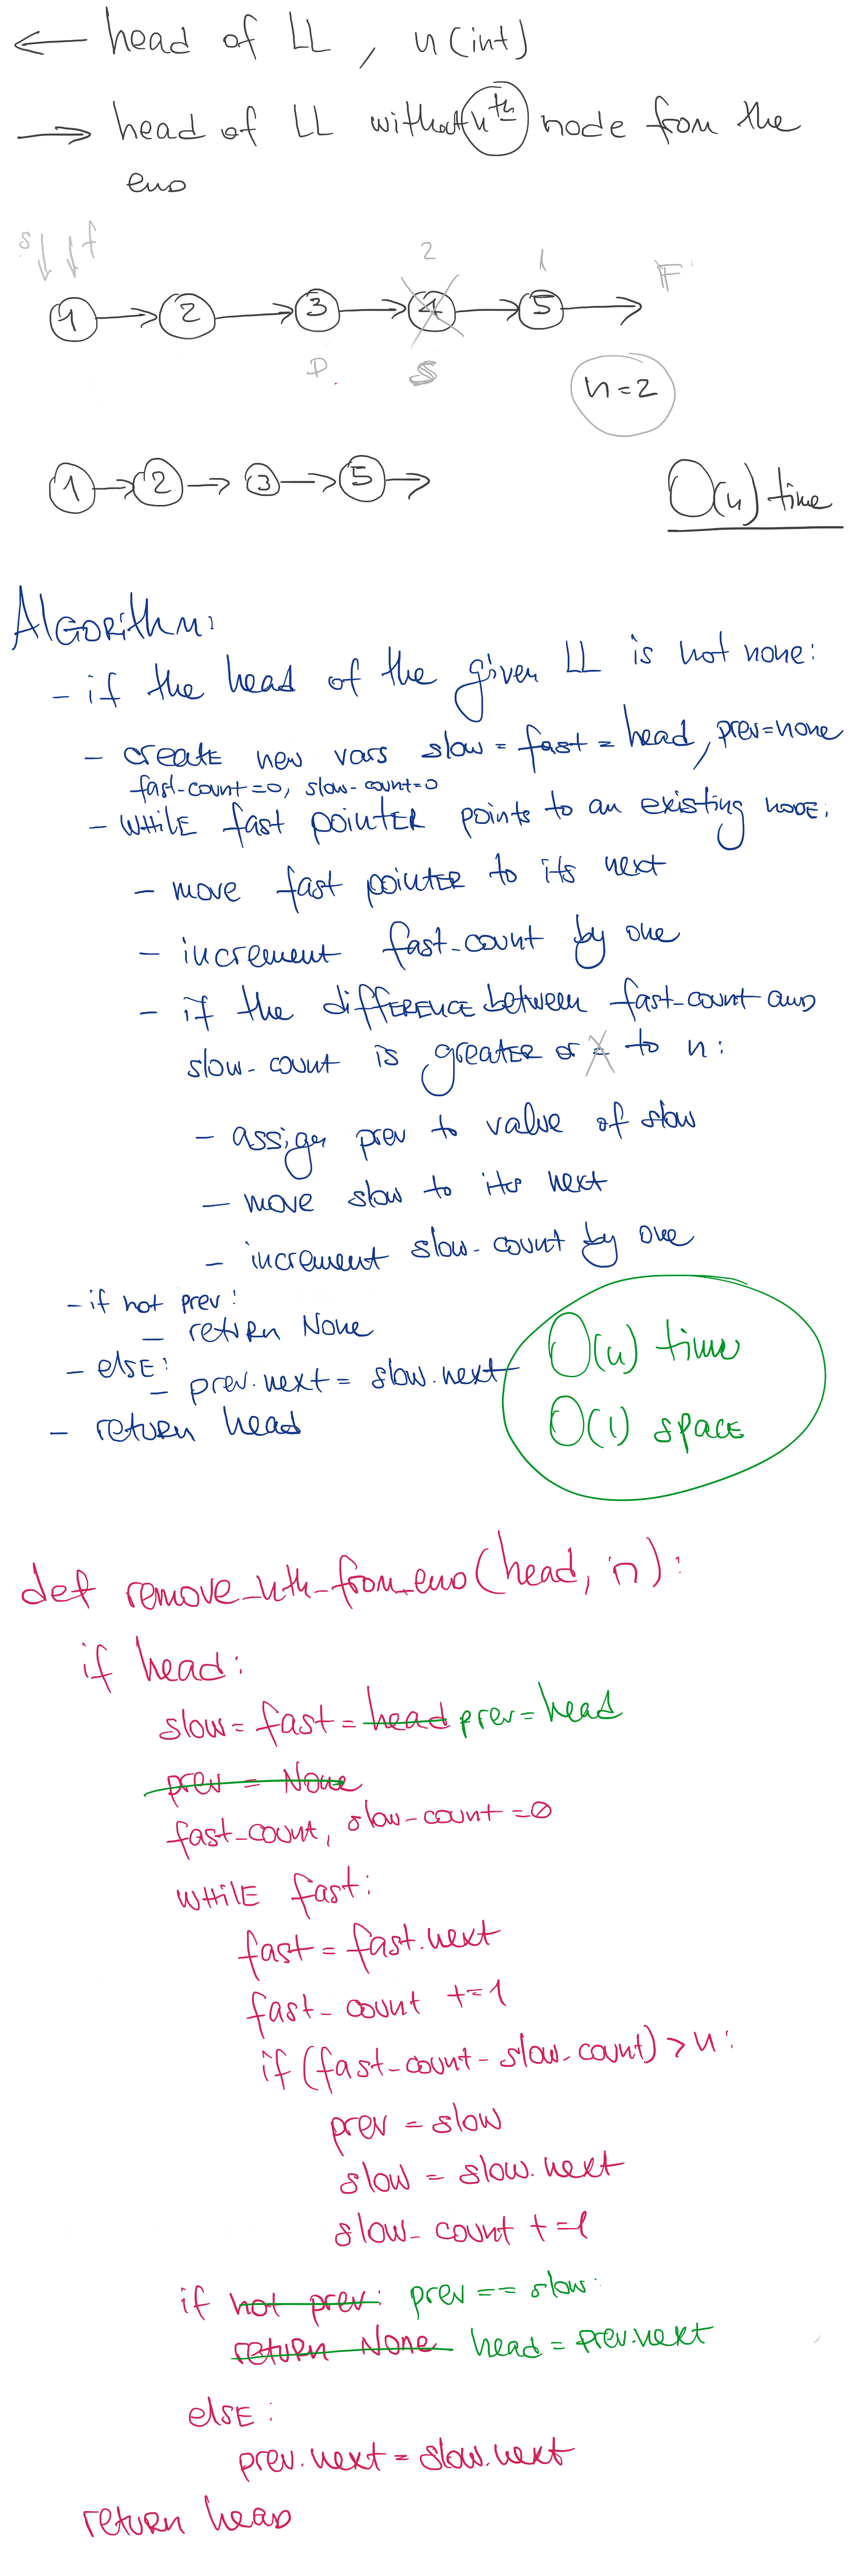 ← head of LL, n (int)
→ head of LL without nth node from the
end
s f
2 1 F
1 → 2 → 3 → 4 → 5 →
P. S
n = 2
1 → 2 → 3 → 5 →
O(n) time
Algorithm:
- if the head of the given LL is not none:
- create new vars slow = fast = head, prev=none
fast-count=0, slow-count=0
- while fast pointer points to an existing node:
- move fast pointer to its next
- increment fast_count by one
- if the difference between fast_count and
slow-count is greater or = to n:
- assign prev to value of slow
- move slow to its next
- increment slow-count by one
- if not prev:
- return None
- else:
- prev.next = slow.next
- return head
O(n) time
O(1) space
def remove_nth_from_end(head, n):
if head:
slow = fast = head prev = head
prev = None
fast_count, slow-count = 0
while fast:
fast = fast.next
fast_count += 1
if (fast_count - slow_count) > n:
prev = slow
slow = slow.next
slow_count += 1
if not prev: prev == slow:
return None head = prev.next
else:
prev.next = slow.next
return head